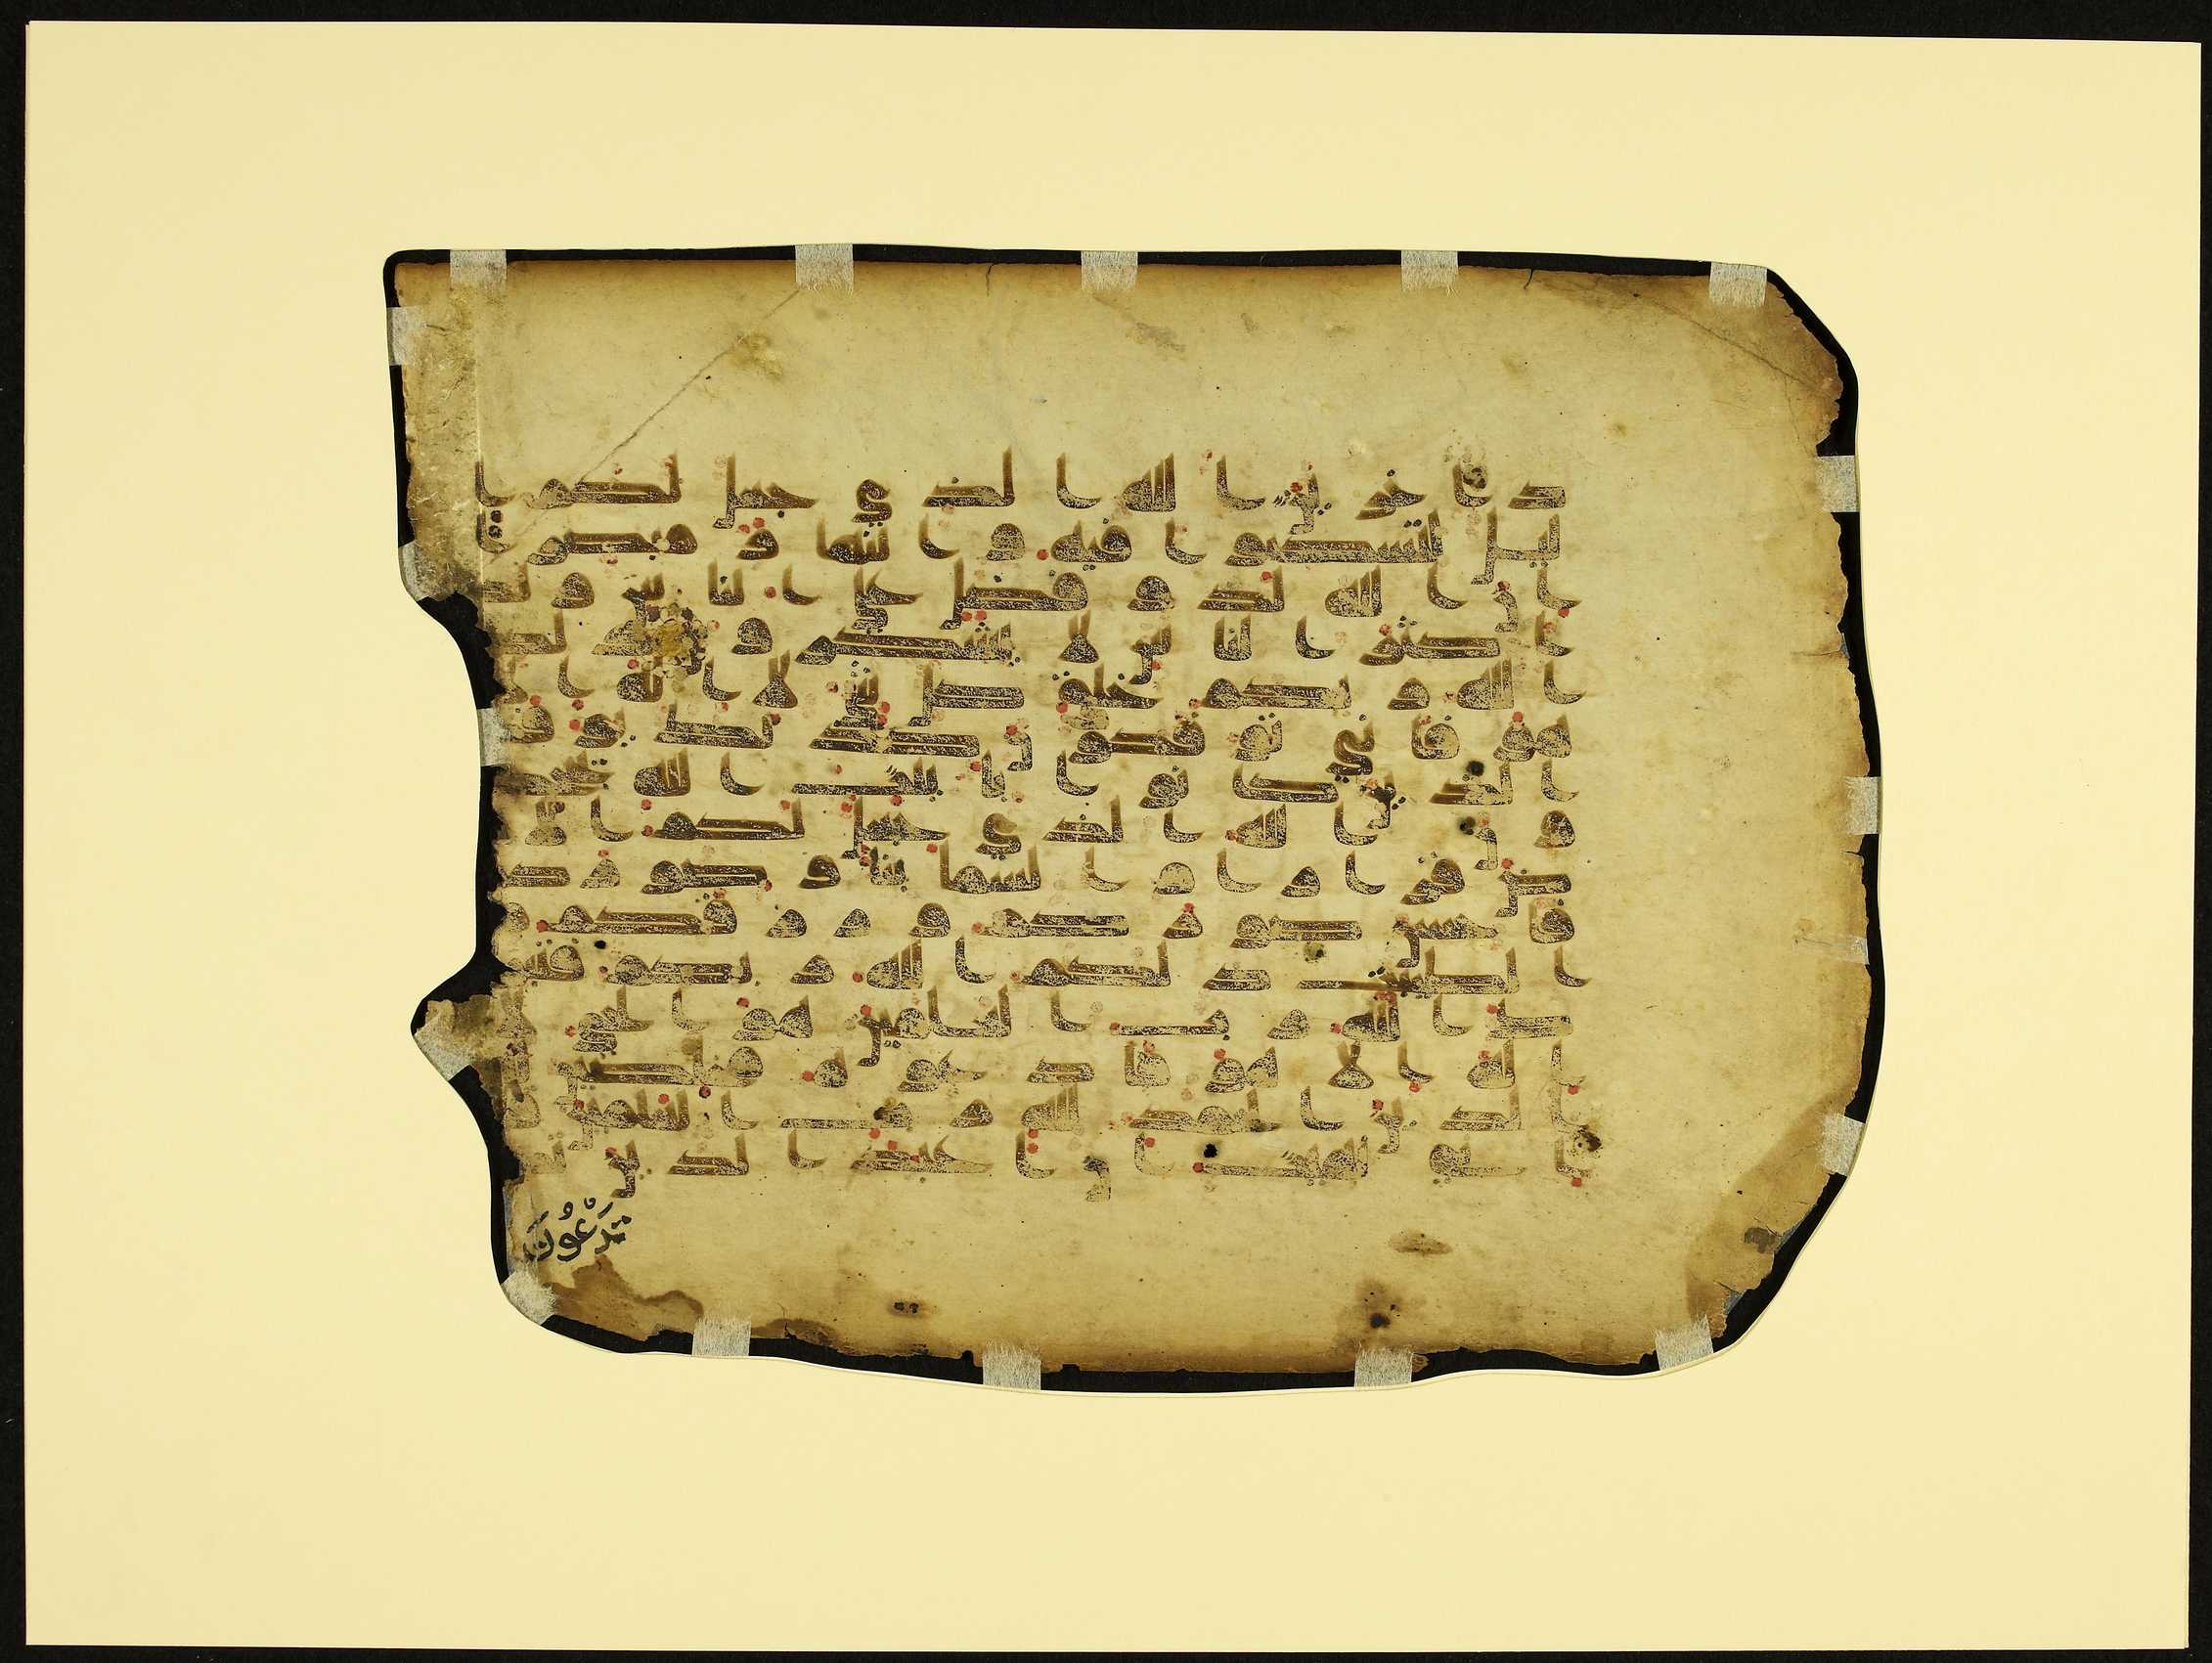 دخرين الله الذي جعل لكم ا
ليل لتسكنوا فيه والنهار مبصر
ا ان الله لذو فضل على الناس ولكـ
ن اكثر الناس لا يشكرون ذلكم
الله ربكم خلق كل شي لا اله الا
هو فانى توفكون كذلك يوفك
الذين كانوا بايت الله يجحد
ون الله الذي جعل لكم الا
رض قرارا والسما بنا وصوركم
فاحسن صوركم ورزقكم من
الطيبت ذلكم الله ربكم فتبر
ك الله رب العلمين هو الحي لا
اله الا هو فادعوه مخلصين له
الدين الحمد لله رب العلمين قل
اني نهيت ان اعبد الذين
تَدْعُونَ